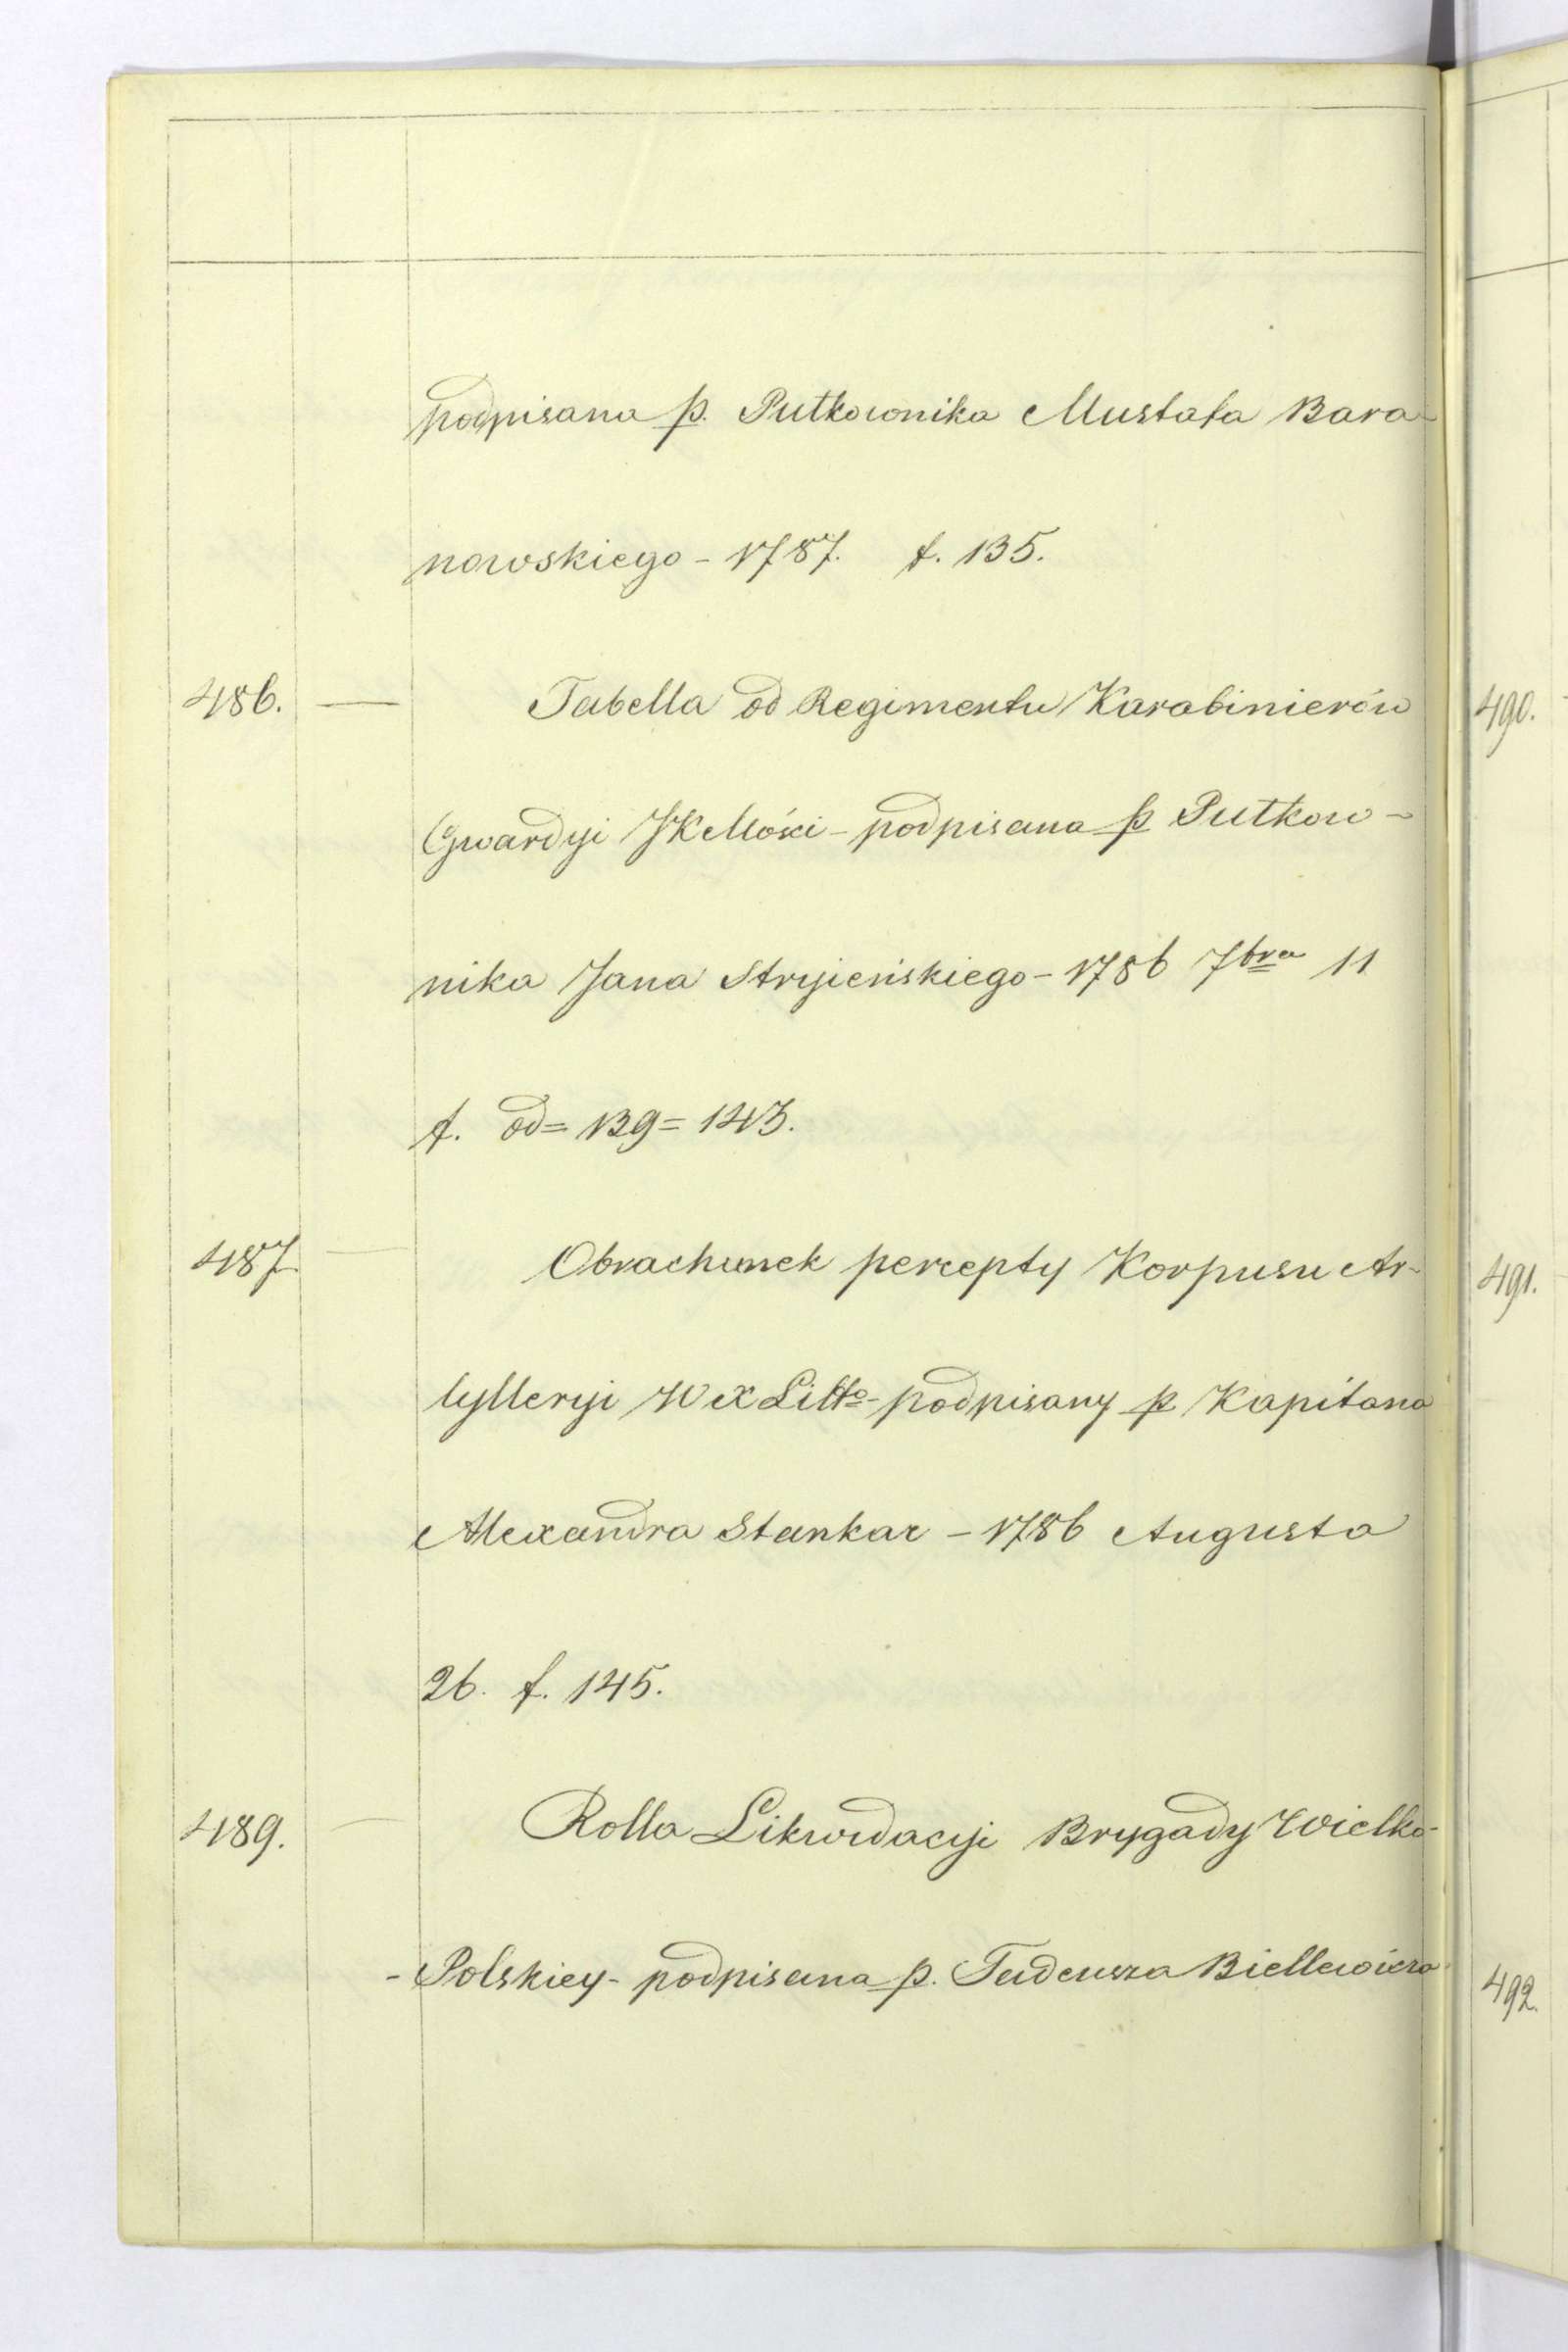 podpisana p. Pułkownika Mustafa Bara-
nowskiego - 1787. f. 135.
486. — Tabella od Regimentu Karabinierów
Gwardyi JKMości - podpisana p Pułkow-
nika Jana Stryieńskiego - 1786 7bra 11
f. od = 139 = 143.
487 — Obrachunek percepty Korpusu Ar-
tylleryi W X Litto - podpisany p Kapitana
Alexandra Stankar - 1786 Augusta
26. f. 145.
489. — Rolla Likwidacyi Brygady Wielko-
- Polskiey - podpisana p. Tadeusza Biellewicza
490.
491.
492.